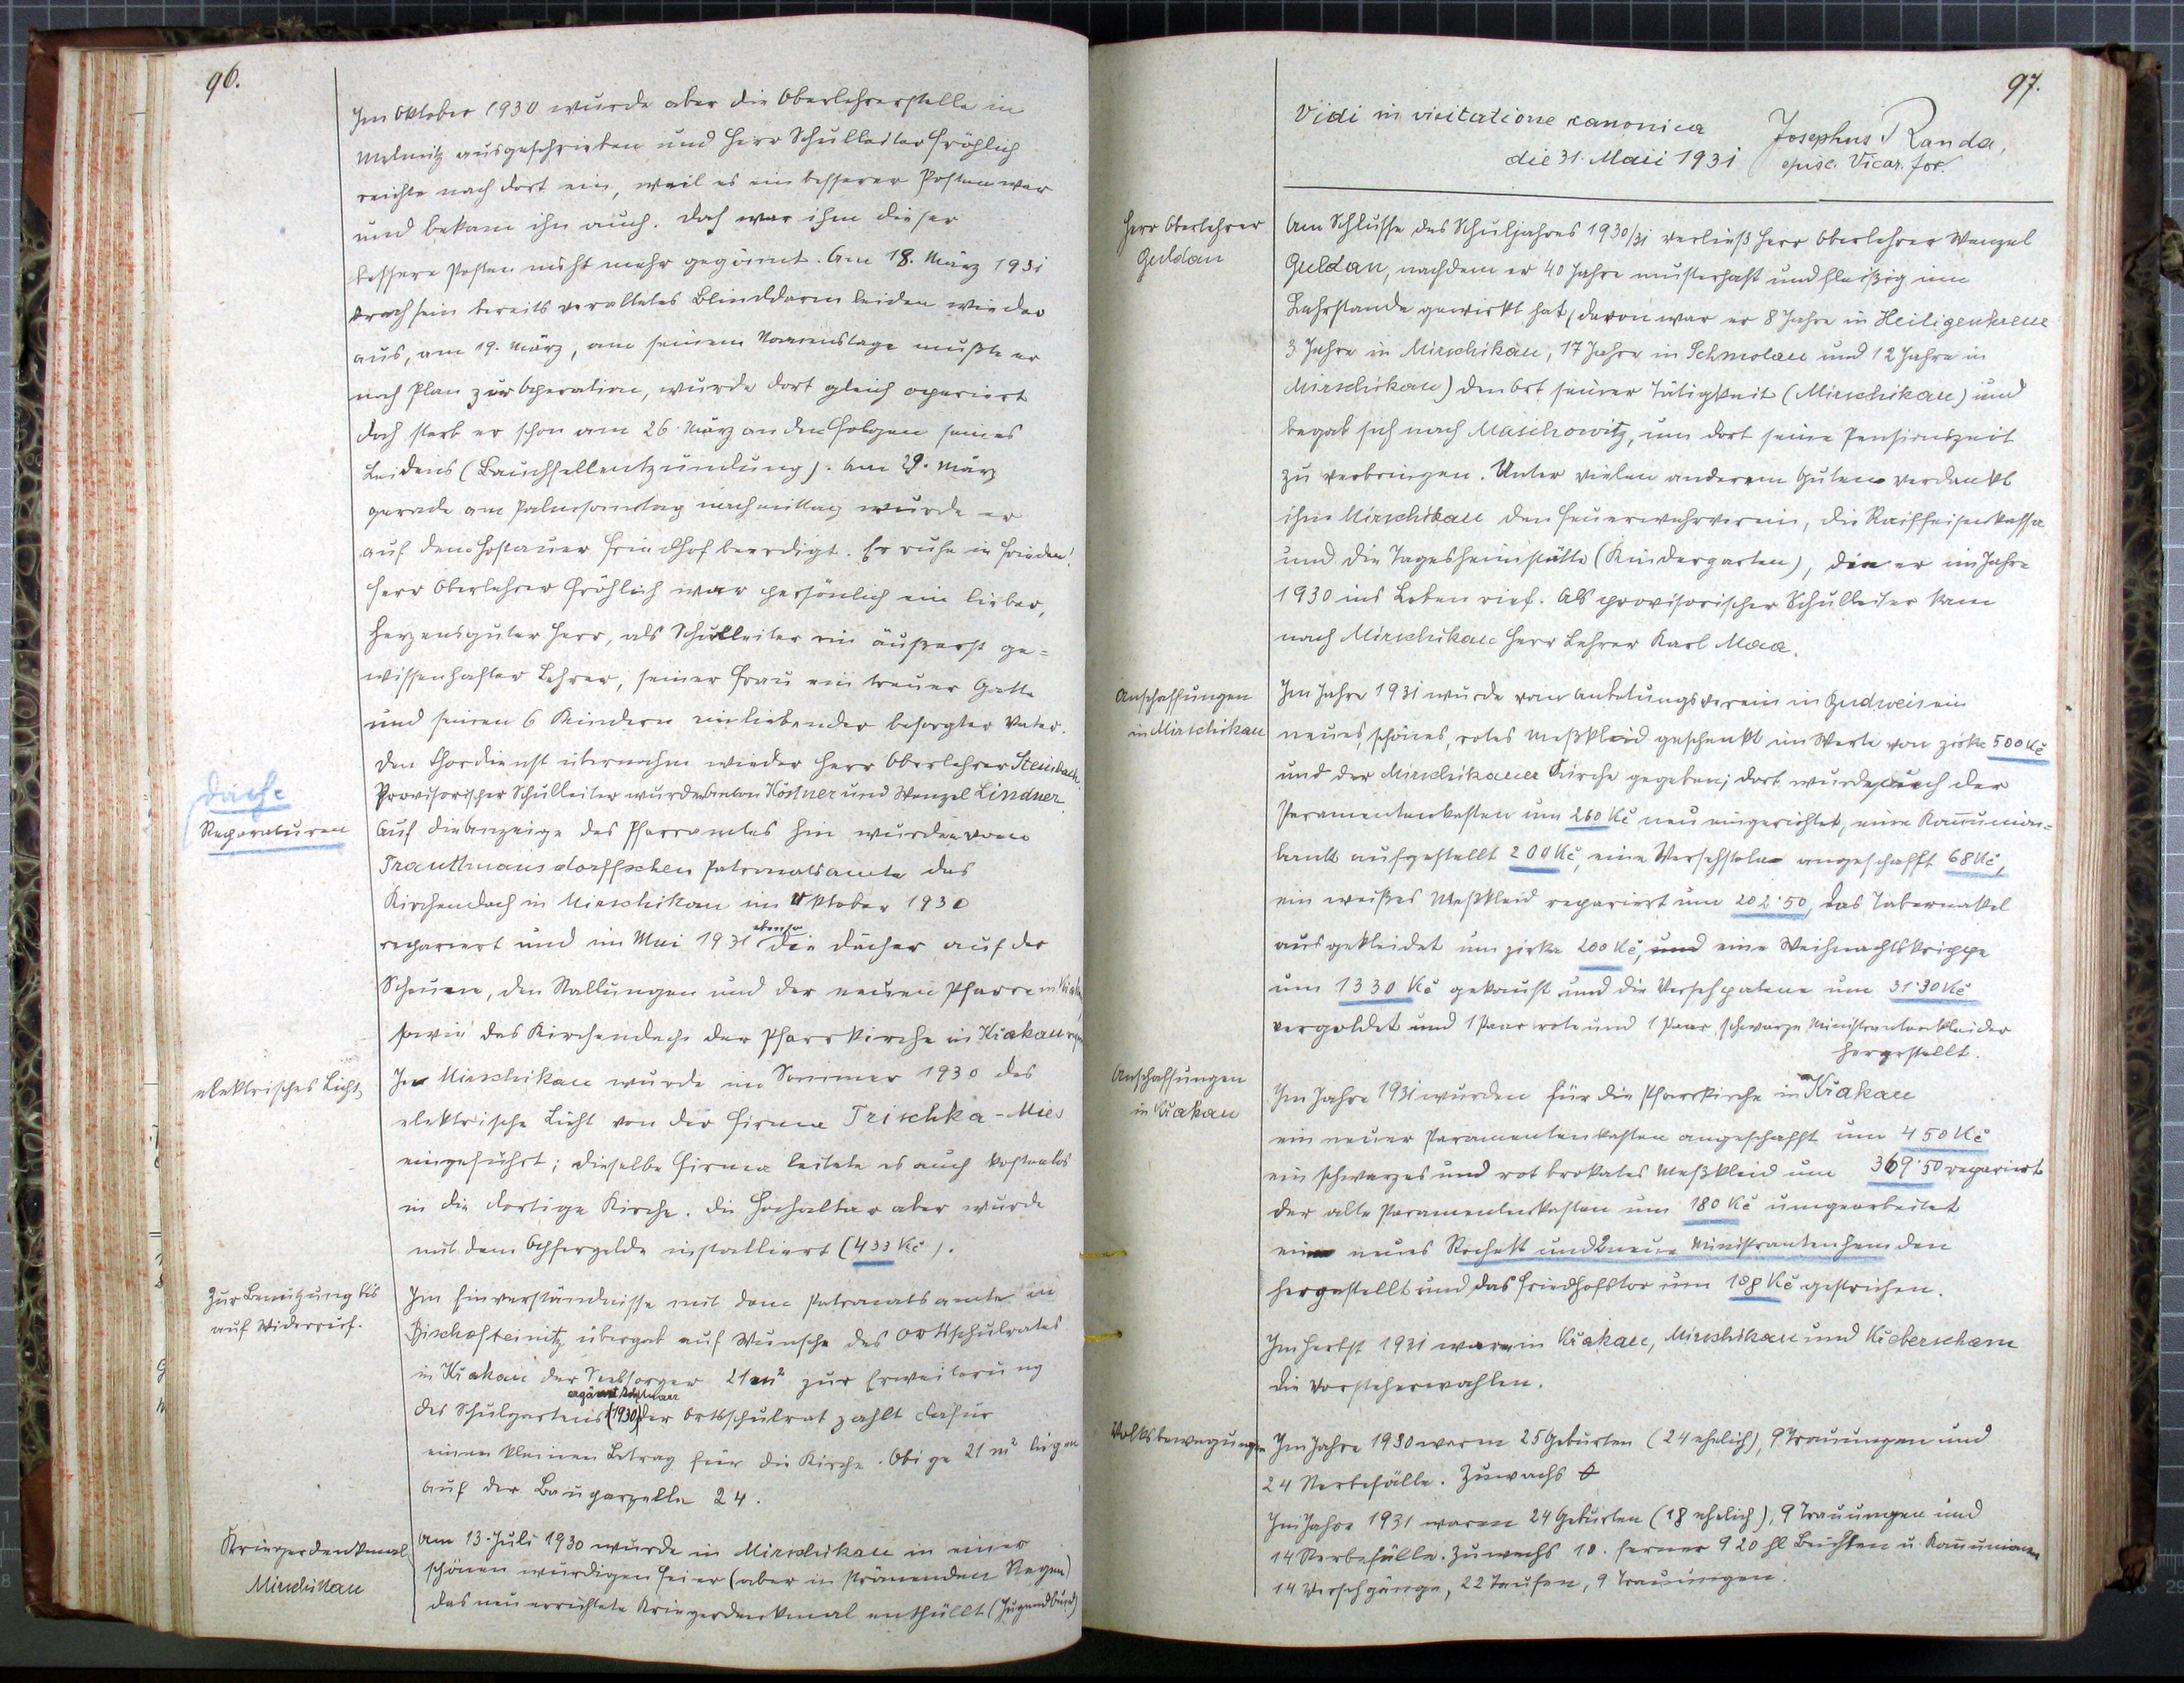 96.
Im Oktober 1930 wurde aber die Oberlehrerstelle in
Melmitz ausgeschrieben und Herr Schulleiter Fröhlich
reichte nach dort ein, weil es ein besserer Posten war
und bekam ihn auch. Doch war ihm dieser
bessere Posten nicht mehr gegönnt. Am 18. März 1931
brach sein bereits veraltetes Blinddarmleiden wieder
aus, am 19. März, an seinem Namenstage mußte er
nach Plan zur Operation, wurde dort gleich operiert
doch starb er schon am 26 März an den Folgen seines
Leidens (Bauchfellentzündung). Am 29. März
gerade am Palmsonntag nachmittag wurde er
auf dem Hostauer Friedhof beerdigt. Er ruhe in Frieden!
Herr Oberlehrer Fröhlich war persönlich ein lieber,
herzensguter Herr, als Schulleiter ein äußerst ge=
wissenhafter Lehrer, seiner Frau ein treuer Gatte
und seinen 6 Kindern ein liebender besorgter Vater.
Den Chordienst übernahm wieder Herr Oberlehrer Steinbach.
Provisorischer Schulleiter wurde Anton Köstner und Wenzel Lindner
Dach=
Reparaturen
Auf die Anzeige des Pfarramtes hin wurde vom
Trauttmansdorffschen Patronatsamte das
Kirchendach in Mirschikau im Oktober 1930
repariert und im Mai 1931 ebenso die Dächer auf der
Scheune, den Stallungen und der neuen Pfarre in Křakau
sowie das Kirchendach der Pfarrkirche in Křakau
elektrisches Licht
In Mirschikau wurde im Sommer 1930 das
elektrische Licht von der Firma Trischka-Mies
eingeführt; dieselbe Firma leitete es auch kostenlos
in die dortige Kirche. Die Hochaltar aber wurde
mit dem Opfergelde installiert (433 Kč).
Zur Benützung bis
auf Widerruf.
Im Einverständnisse mit dem Patronatsamte in
Bischofteinitz übergab auf Wunsche des Ortsschulrates
in Křakau der Seelsorger 21 m² zur Erweiterung
des Schulgartens (1930) der Ortsschulrat zahlt dafür
einen kleinen Betrag für die Kirche. Obige 21 m² liegen
auf der Bauparzelle 24.
Kriegerdenkmal
Mirschikau
Am 13. Juli 1930 wurde in Mirschikau in einer
schönen würdigen Feier (aber in strömenden Regen)
das neu errichtete Kriegerdenkmal enthüllt (Jugendbund)
97.
Vidi in visitatione canonica
die 31. Maii 1931
Josephus Randa,
episc. Vicar. for.
Herr Oberlehrer
Guldan
Am Schlusse des Schuljahres 1930/31 verließ Herr Oberlehrer Wenzel
Guldan, nachdem er 40 Jahre musterhaft und fleißig im
Lehrstande gewirkt hat, (davon war er 8 Jahre in Heiligenkreuz
3 Jahre in Mirschikau, 17 Jahre in Schmolau und 12 Jahre in
Mirschikau) den Ort seiner Tätigkeit (Mirschikau) und
begab sich nach Maschowitz, um dort seine Pensionszeit
zu verbringen. Unter vielen anderem Guten verdankt
ihm Mirschikau den Feuerwehrverein, die Raiffeisenkassa
und die Tagesheimstätte (Kindergarten), die er im Jahre
1930 ins Leben rief. Als provisorischer Schulleiter kam
nach Mirschikau Herr Lehrer Karl Maa.
Anschaffungen
in Mirschikau
Im Jahre 1931 wurde vom Anbetungsverein in Budweis ein
neues, schönes, rotes Meßkleid geschenkt im Werte von zirka 500 Kč
und der Mirschikauer Kirche gegeben; dort wurde auch der
Paramentenkasten um 260 Kč neu eingerichtet, eine Kom̅union=
bank aufgestellt 200 Kč, eine Versehstola angeschafft 68 Kč,
ein weißes Meßkleid repariert um 202·50, das Tabernakel
ausgekleidet um zirka 200 Kč, und eine Weihnachtskrippe
um 1330 Kč gekauft und die Versehpatene um 31·30 Kč
vergoldet und 1 Paar rote und 1 Paar schwarze Ministrantenkleider
hergestellt.
Anschaffungen
in Křakau
Im Jahre 1931 wurden für die Pfarrkirche in Křakau
ein neuer Paramentenkasten angeschafft um 450 Kč
ein schwarzes und rot brokates Meßkleid um 369·50 repariert
der alte Paramentenkasten um 180 Kč umgearbeitet
ein neues Rochett und 2 neue Ministrantenhemden
hergestellt und das Friedhoftor um 108 Kč gestrichen.
Im Herbst 1931 waren in Křakau, Mirschikau und Křeberscham
die Vorsteherwahlen.
Volksbewegungen
Im Jahre 1930 waren 25 Geburten (24 ehelich), 9 Trauungen und
24 Sterbefälle. Zuwachs
Im Jahre 1931 waren 24 Geburten (18 ehelich), 9 Trauungen und
14 Sterbefälle. Zuwachs 10. ferner 920 hl Beichten u. Kom̅unionen
14 Versehgänge, 22 Taufen, 9 Trauungen.